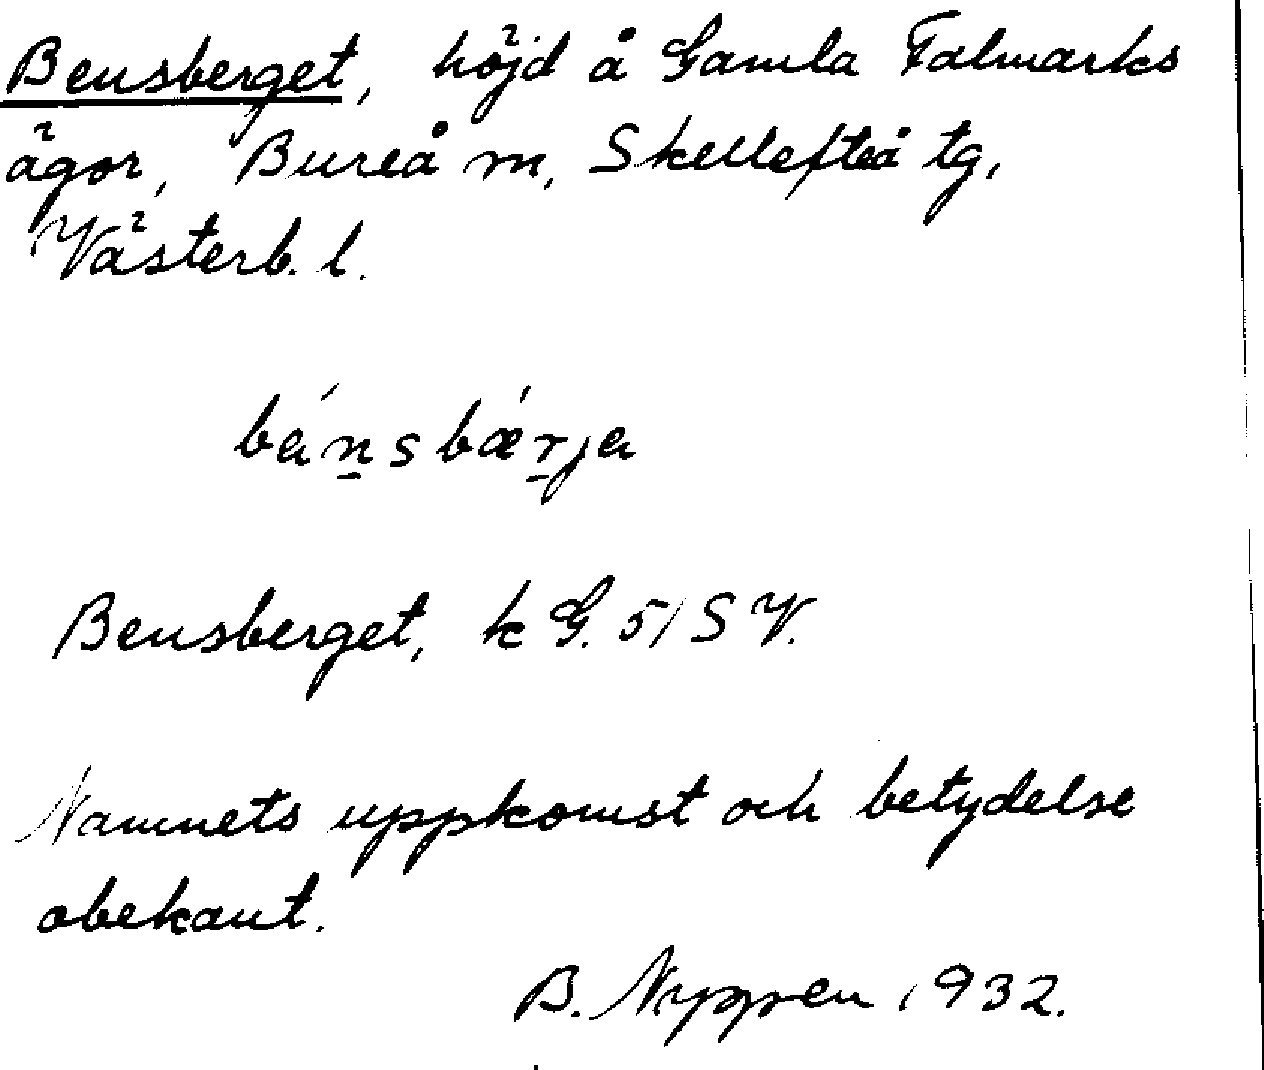 Bensberget, höjd å Gamla Falmarks
ägor, Bureå m, Skellefteå tg,
Västerb. l.
bánsbǽrja
Bensberget, k G. 51 S V.
Namnets uppkomst och betydelse
obekant.
B. Nygren 1932.